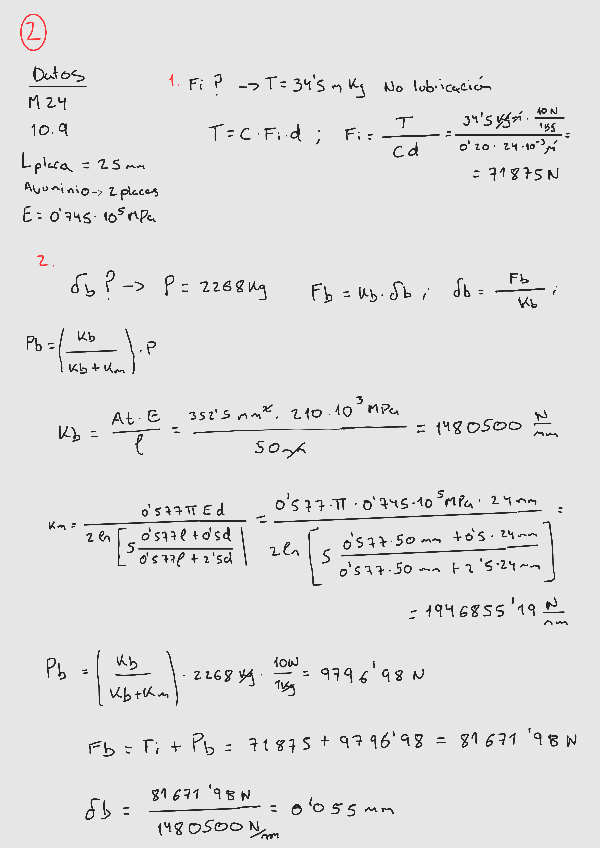 2
Datos
M24
10.9
Lplaca = 25 mm
Aluminio -> 2 placas
E = 0'745·10⁵ MPa
1. Fi? -> T = 34'5 m Kg No lubricación
T = C·Fi·d ; Fi = T / Cd = (34'5 Kg·m · 10N / 1Kg) / (0'20 · 24·10⁻³ m) =
= 71875 N
2.
δb? -> P = 2268 Kg Fb = Kb·δb ; δb = Fb / Kb ;
Pb = (Kb / (Kb + Km)) · P
Kb = At·E / l = (352'5 mm² · 210·10³ MPa) / 50 mm = 1480500 N/mm
Km = 0'577 π E d / (2 ln [5 (0'577l + 0'5d) / (0'577l + 2'5d)]) = (0'577·π·0'745·10⁵ MPa · 24 mm) / (2 ln [5 (0'577·50 mm + 0'5·24 mm) / (0'577·50 mm + 2'5·24 mm)]) =
= 1946855'19 N/mm
Pb = (Kb / (Kb + Km)) · 2268 Kg · 10N / 1Kg = 9796'98 N
Fb = Ti + Pb = 71875 + 9796'98 = 81671'98 N
δb = 81671'98 N / 1480500 N/mm = 0'055 mm